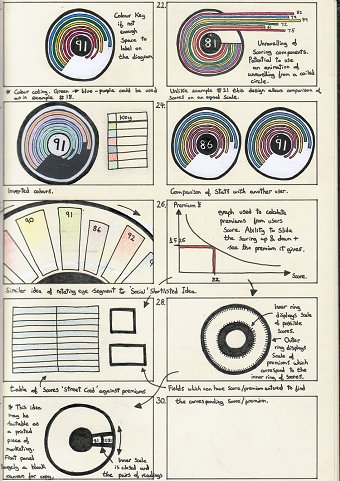 Colour Key
if not
enough
Space to
label on
the diagram.
91
* Colour coding. Green → blue - purple could be used
as in example # 18.
22.
82
79
81
76
72
75
81
Unravelling of
Scoring components.
Potential to use
an animation of
unravelling from a coiled
circle.
Unlike example # 21 this design allows comparison of
Scores on an equal scale.
91
Key
Inverted colours.
24.
86
91
Comparison of Stats with another user.
90
91
86
92
Similar idea of rotating eye segment to 'Social' Shortlisted Idea.
26.
Premium £
graph used to calculate
premiums from users
Score. Ability to slide
the scoring up & down +
see the premium it gives.
Score.
82
table of Scores 'Street Cred' against premiums
28.
Inner ring
displays Scale
of possible
Scores.
Outer
ring displays
Scale of
premiums which
correspond to the
inner ring of Scores.
Fields which can have score/premium entered to find
30.
the corresponding Score/premium.
* This idea
may be
suitable as
a printed
piece of
marketing.
Front panel
largely a blank
canvas for copy.
Inner Scale
is closed and
the pairs of readings